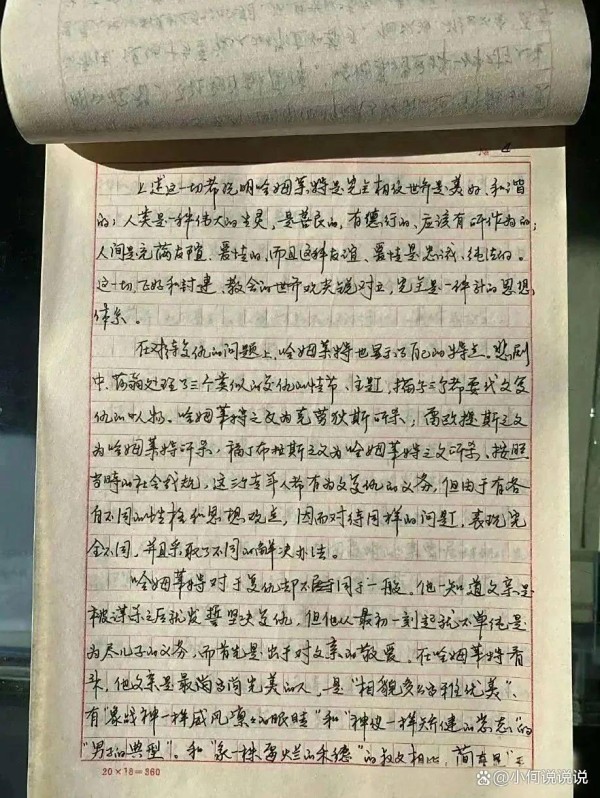 4
上述这一切都说明哈姆莱特是完全相信世界是美好、和谐
的；人类是一种伟大的生灵，是善良的，有德行的、应该有所作为的；
人间是充满友谊、爱情的，而且这种友谊、爱情是忠诚、纯洁的。
这一切，恰好和封建、教会的世界观尖锐对立，完全是一种新的思想
体系。
在对待复仇的问题上，哈姆莱特也显示了自己的特点。悲剧
中，莎翁处理了三个类似的复仇的情节、主题，描写三个都要代父复
仇的人物。哈姆莱特之父为克劳狄斯所杀，雷欧提斯之父
为哈姆莱特所杀，福丁布拉斯之父为哈姆莱特之父所杀。按照
当时的社会成规，这三个青年人都有为父复仇的义务，但由于有各
自不同的性格和思想观点，因而对待同样的问题，表现完
全不同，并且采取了不同的解决办法。
哈姆莱特对于复仇却不同于一般。他一知道父亲是
被谋杀之后就发誓坚决复仇，但他从最初一刻起就不单纯是
为尽儿子的义务，而首先是出于对父亲的敬爱。在哈姆莱特看
来，他父亲是最高尚完美的人，是“相貌多么高雅优美”、
有“像战神一样威风凛凛的眼睛”和“神使一样矫健的姿态”的
“男子的典型”。和“像一株霉烂的禾穗”的叔父相比，简直是
20×18=360
@小何说说说